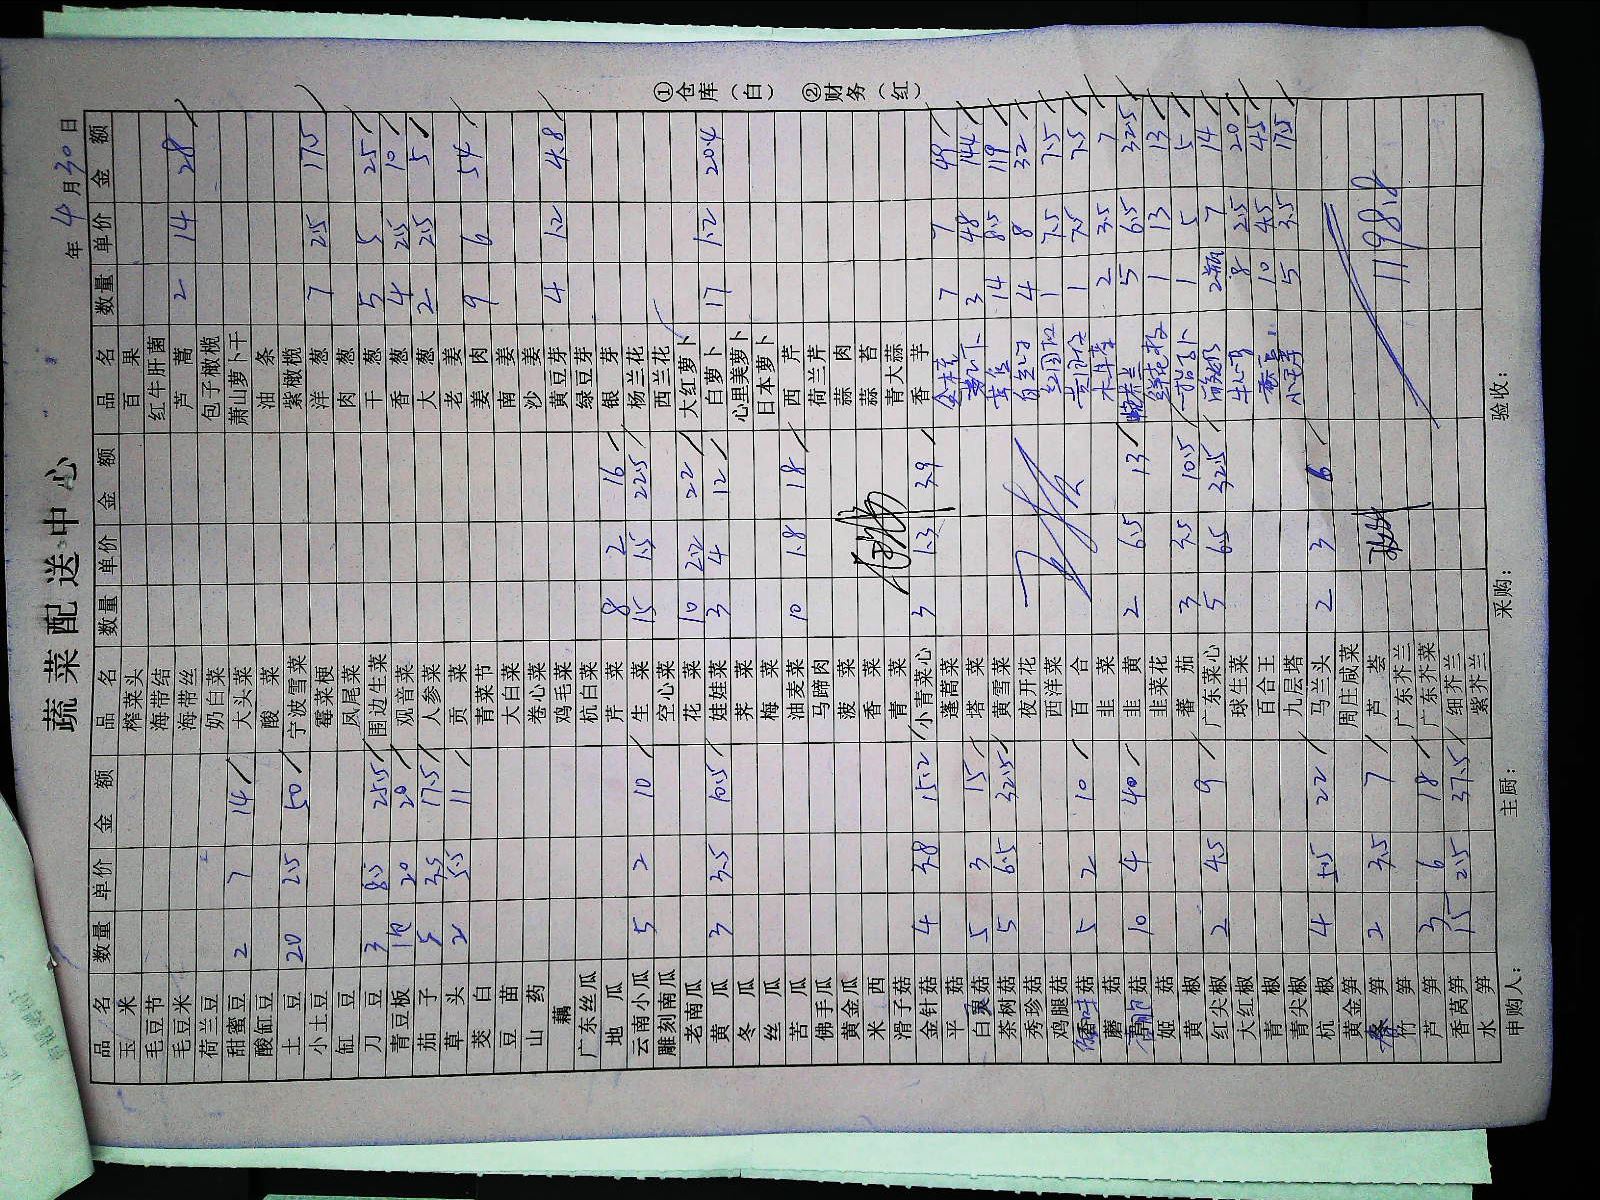 蔬菜配送中心
年 4月30日
品名 数量 单价 金额 品名 数量 单价 金额 品名 数量 单价 金额
玉米 榨菜头 百果
毛豆节 海带结 红牛肝菌
毛豆米 海带丝 芦蒿 2 14 28
荷兰豆 奶白菜 包子橄榄
甜蜜豆 2 7 14 大头菜 萧山萝卜干
酸缸豆 酸菜 油条
土豆 20 2.5 50 宁波雪菜 紫橄榄
小土豆 霉菜梗 洋葱 7 2.5 17.5
缸豆 凤尾菜 肉葱
刀豆 3 8.5 25.5 围边生菜 干葱 5 5 25
青豆板 1包 20 20 观音菜 香葱 4 2.5 10
茄子 5 3.5 17.5 人参菜 大葱 2 2.5 5
草头 2 5.5 11 贡菜 老姜 9 6 54
茭白 青菜节 姜肉
豆苗 大白菜 南姜
山药 卷心菜 沙姜
藕 鸡毛菜 黄豆芽 4 1.2 4.8
广东丝瓜 杭白菜 绿豆芽
地瓜 芹菜 8 2 16 银芽
云南小瓜 5 2 10 生菜 15 1.5 22.5 杨兰花
雕刻南瓜 空心菜 西兰花
老南瓜 花菜 10 2.2 22 大红萝卜
黄瓜 3 3.5 10.5 娃娃菜 3 4 12 白萝卜 17 1.2 20.4
冬瓜 荠菜 心里美萝卜
丝瓜 梅菜 日本萝卜
苦瓜 油麦菜 10 1.8 18 西芹
佛手瓜 马蹄肉 荷兰芹
黄金瓜 菠菜 蒜肉
米西 香菜 蒜苔
滑子菇 青菜 青大蒜
金针菇 4 3.8 15.2 小青菜心 3 1.3 3.9 香芋
平菇 蓬蒿菜 7 7 49
白灵菇 5 3 15 塔菜 3 48 144
茶树菇 5 6.5 32.5 黄雪菜 14 8.5 119
秀珍菇 夜开花 4 8 32
鸡腿菇 西洋菜 1 7.5 7.5
菇 5 2 10 百合 1 7.5 7.5
蘑菇 韭菜 2 3.5 7
菇 10 4 40 韭黄 2 6.5 13 5 6.5 32.5
姬菇 韭菜花 1 13 13
黄椒 番茄 3 3.5 10.5 1 5 5
红尖椒 2 4.5 9 广东菜心 5 6.5 32.5 2瓶 7 14
大红椒 球生菜 8 2.5 20
青椒 百合王 10 4.5 45
青尖椒 九层塔 5 3.5 17.5
杭椒 4 5.5 22 马兰头 2 3 6
黄金笋 周庄咸菜
笋 2 3.5 7 芦荟 1198.8
竹笋 广东芥兰
芦笋 3 6 18 广东芥菜
香莴笋 15 2.5 37.5 细芥兰
水笋 紫芥兰
申购人： 主厨： 采购： 验收：
①仓库（白） ②财务（红）